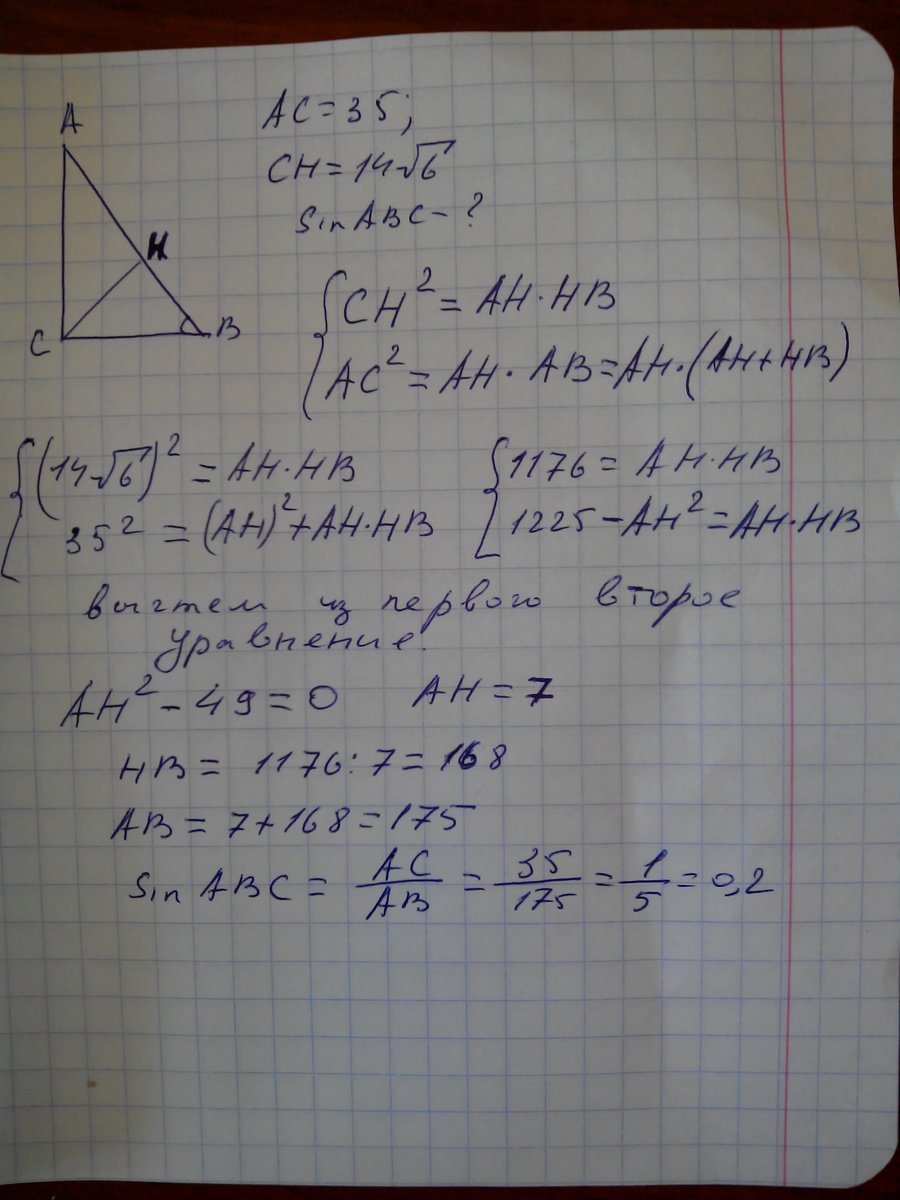 A
H
C
B
AC = 35;
CH = 14√6
sin ABC - ?
{ CH² = AH · HB
AC² = AH · AB = AH · (AH + HB)
{ (14√6)² = AH · HB
35² = (AH)² + AH · HB
{ 1176 = AH · HB
1225 - AH² = AH · HB
вычтем из первого второе
уравнение.
AH² - 49 = 0 AH = 7
HB = 1176 : 7 = 168
AB = 7 + 168 = 175
sin ABC = AC/AB = 35/175 = 1/5 = 0,2